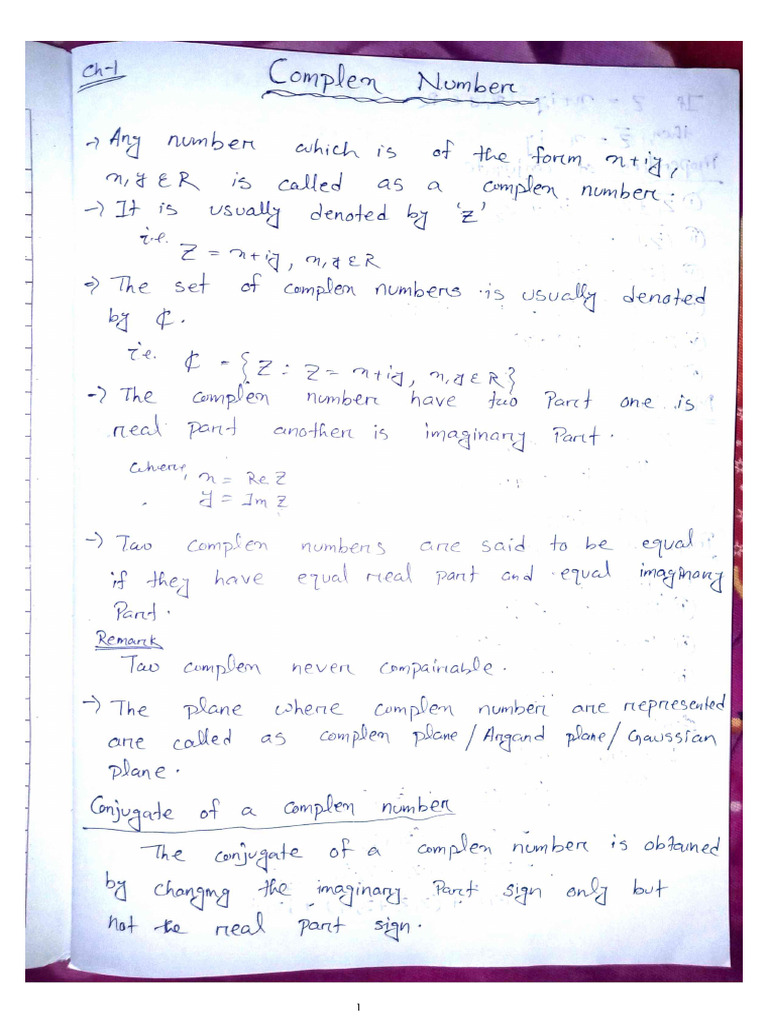 Ch-1
Complex Number
→ Any number which is of the form x+iy,
x, y ∈ R is called as a complex number.
→ It is usually denoted by 'z'
i.e. Z = x+iy, x, y ∈ R
→ The set of complex numbers is usually denoted
by ₵.
i.e. ₵ = {Z : Z = x+iy, x, y ∈ R}
→ The complex number have two Part one is
real part another is imaginary Part.
where, x = Re Z
y = Im Z
→ Two complex numbers are said to be equal
if they have equal real part and equal imaginary
Part.
Remark
Two complex never compairiable.
→ The plane where complex number are represented
are called as complex plane/Argand plane/Gaussian
plane.
Conjugate of a complex number
The conjugate of a complex number is obtained
by changing the imaginary Part sign only but
not the real part sign.
1